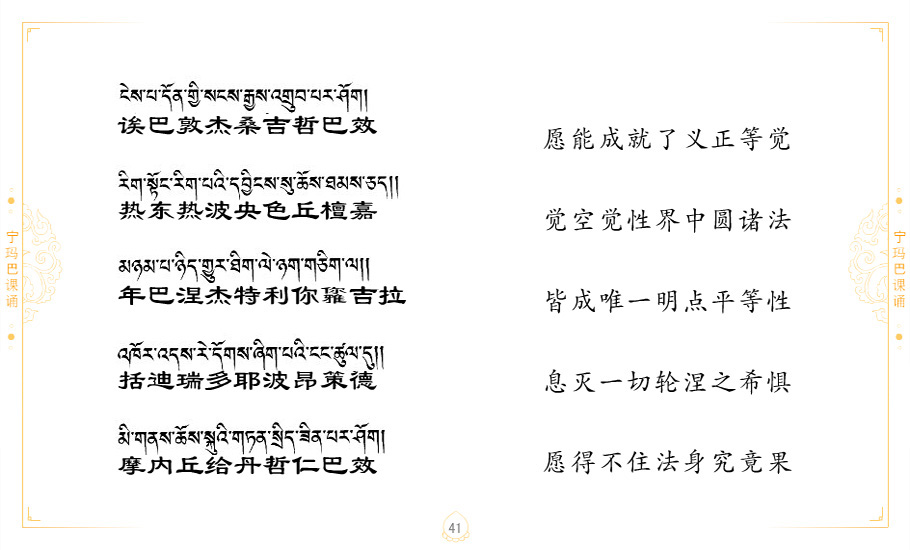 ངེས་པ་དོན་གྱི་སངས་རྒྱས་འགྲུབ་པར་ཤོག།
诶巴敦杰桑吉哲巴效
愿能成就了义正等觉
རིག་སྟོང་རིག་པའི་དབྱིངས་སུ་ཆོས་ཐམས་ཅད།།
热东热波央色丘檀嘉
觉空觉性界中圆诸法
མཉམ་པ་ཉིད་གྱུར་ཐིག་ལེ་ཉག་གཅིག་ལ།།
年巴涅杰特利你吉拉
皆成唯一明点平等性
འཁོར་འདས་རེ་དོགས་ཞིག་པའི་ངང་ཚུལ་དུ།།
括迪瑞多耶波昂策德
息灭一切轮涅之希惧
མི་གནས་ཆོས་སྐུའི་གཏན་སྲིད་ཟིན་པར་ཤོག།
摩内丘给丹哲仁巴效
愿得不住法身究竟果
宁玛巴课诵
宁玛巴课诵
41